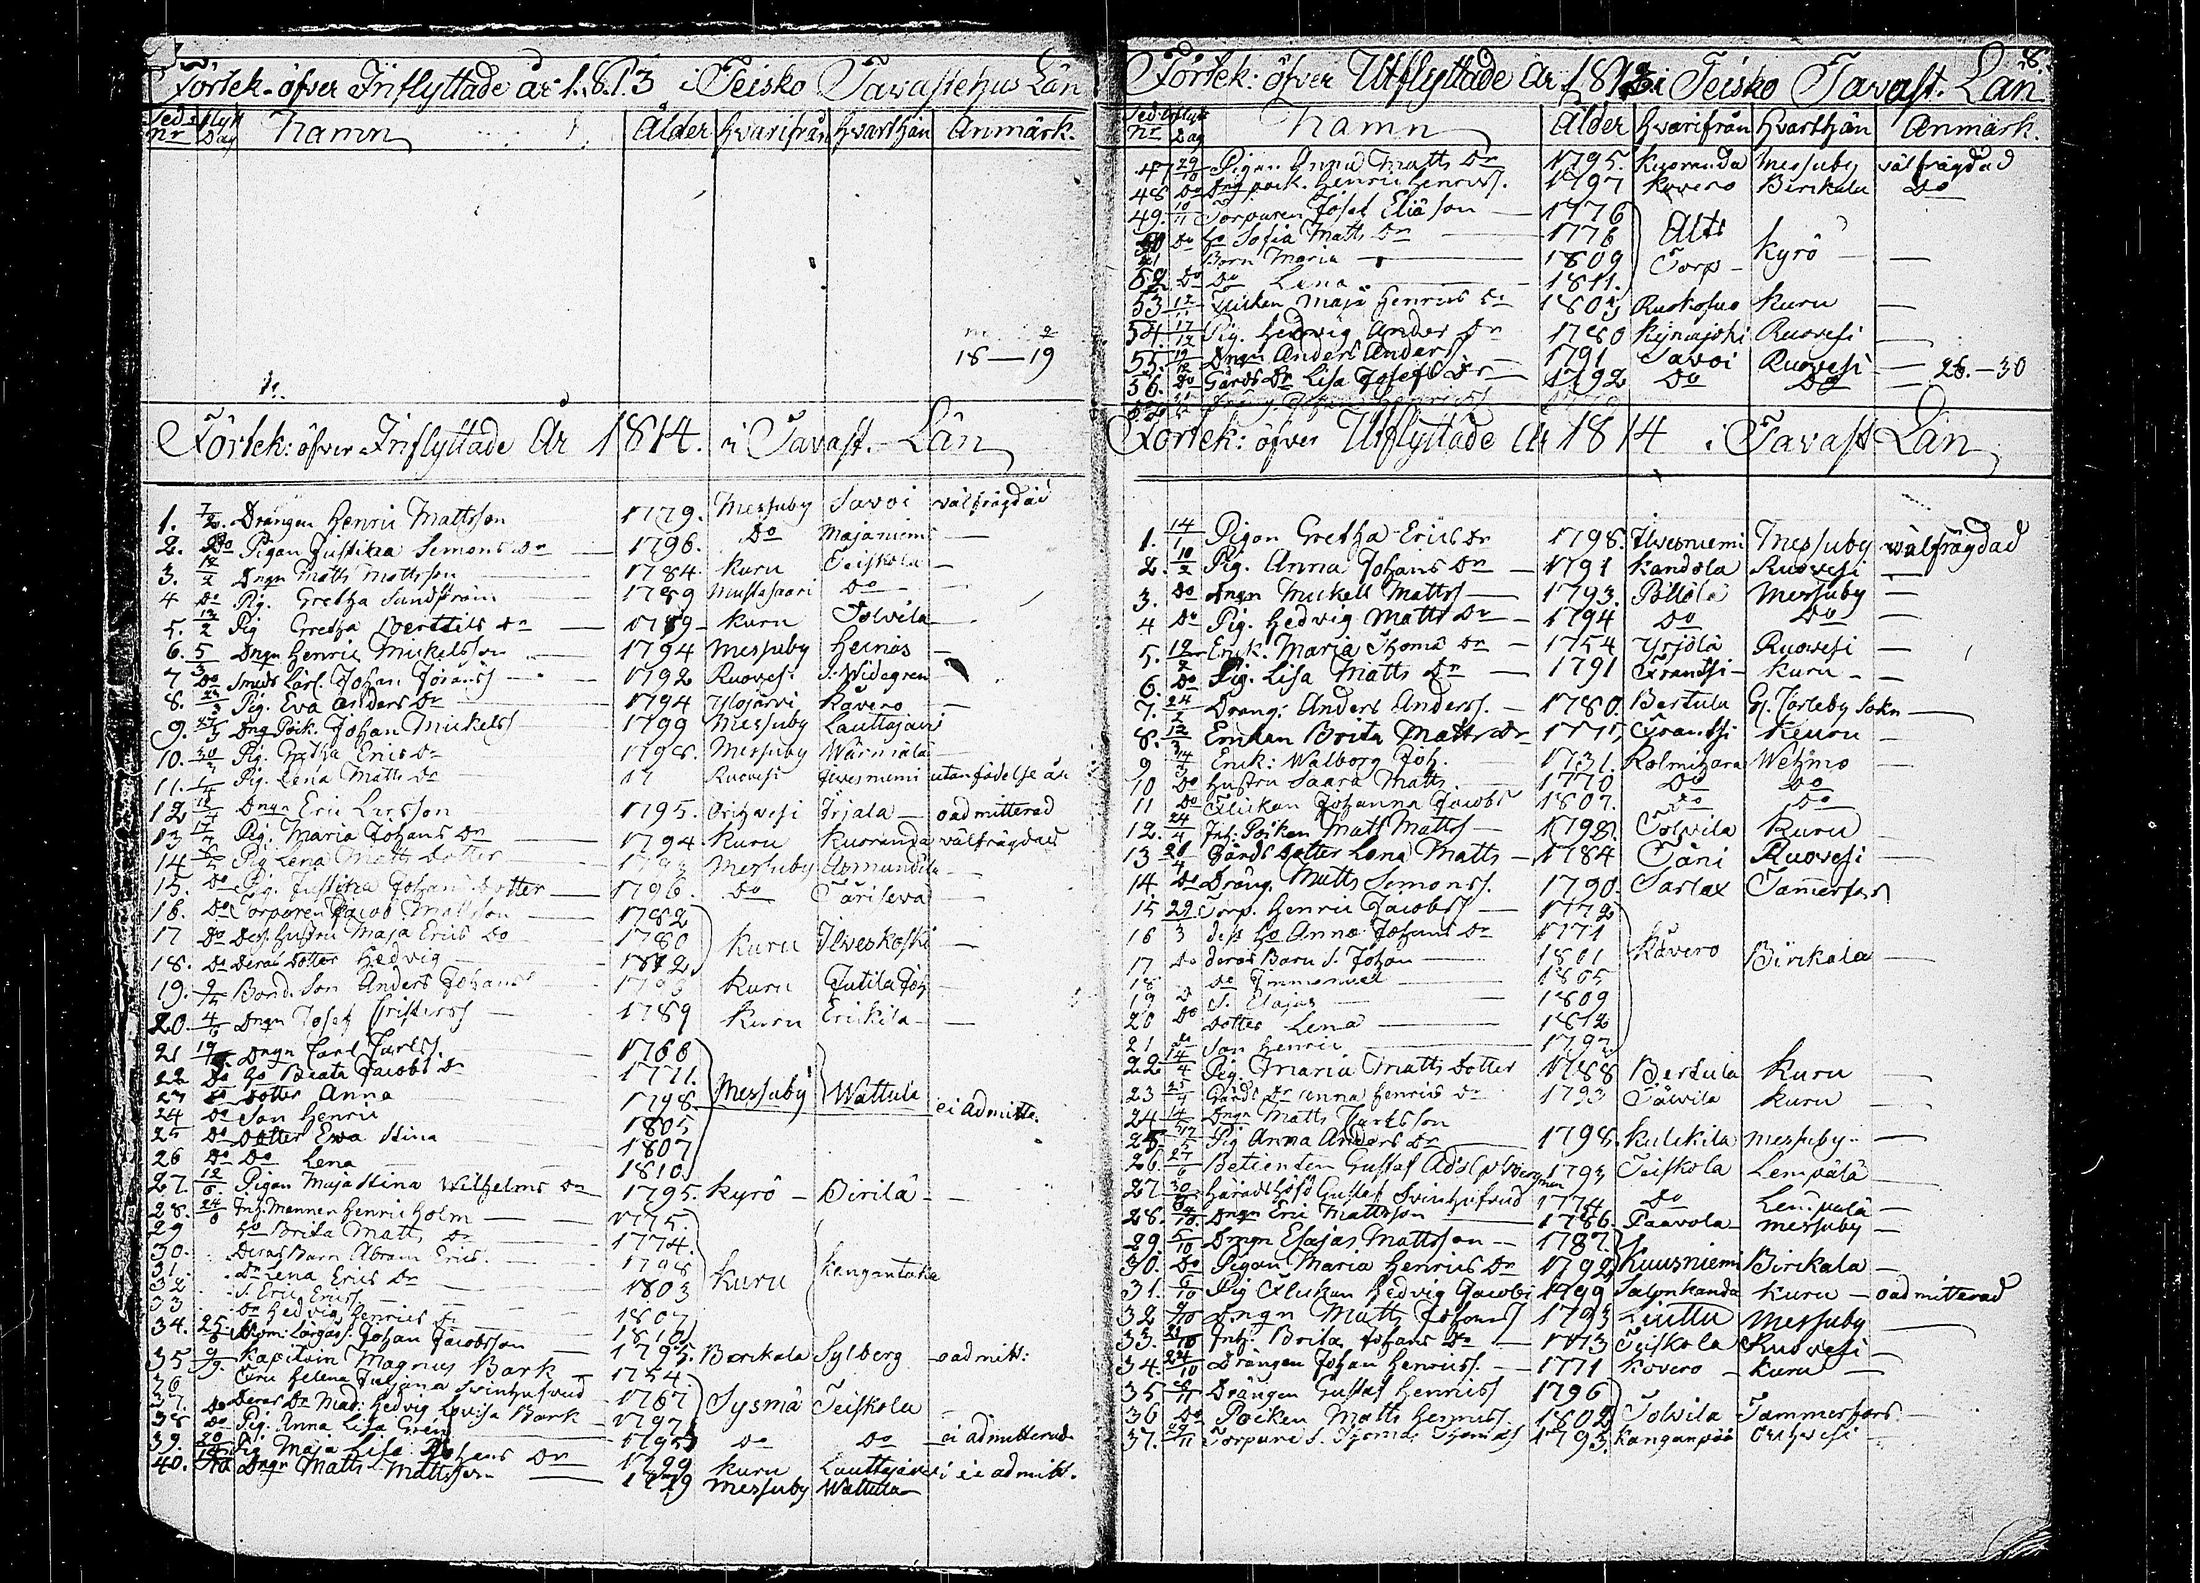 Förtek. öfver Inflyttade år 1813 i Teisko Tavastehus Län
Sed. nr Flyt Dag Namn Ålder hvarifrån hvarthän Anmärk.
18—19
Förtek: öfver Inflyttade År 1814. i Tavast. Län
1. Drängen Henric Mattsson 1779. Messuby Savoi välfrägdad
2. Do Pigan Justina Simons Dr 1796. Do Majaniemi
3. Dngn Matts Mattsson 1784. Kuru Teiskola
4 Do Pig. Gretha Sundström 1789 Mustasaari Do
5. Pig Gretha Bertills Dr 1789 Kuru Tolvila
6. 5/3 Dngn Henric Mickelsson 1794 Messuby Heinäs
7 Do Smeds Lärl. Johan Johanss 1792 Ruovesi S. Widegren
8. Pig. Eva Anders Dr 1794 Ylöjärvi Kävero
9. Dng Poik. Johan Mickelss 1799 Messuby Lauttajärvi
10. Pig. Gretha Erics Dr 1798. Messuby Wärmälä
11. Pig. Lena Matts Dr 17 Ruovesi Ilvesniemi utan födelse år
12 Dngn Eric Larsson 1795. Orihvesi Irjala oadmitterad
13 Pig. Maria Johans Dr 1794 Kuru Kuoranda välfrägdad
14 Pig Lena Matts Dotter Messuby Asmundila
15. Do Pig. Justina Johans Dotter 1796. Do Tärilevä
16. Do Torparen Jacob Mattsson 1782
17 Do Dess Hustru Maja Erics Do 1780 Kuru Ilveskoski
18. Do Deras Dotter Hedvig 1812
19. Bond. Son Anders Johans Kuru Jutila Joh
20. Dngn Josef Christerss 1789 Kuru Erickilä
21 Dngn Carl Carlss. 1766
22 Do Ho Beata Jacobs Dr 1771. Messuby Wattula
23 Do Dotter Anna 1798 ei admitte.
24 Do Son Henric 1805
25 Do Dotter Ewa Stina 1807
26 Do Do Lena 1810
27. Pigan Maja Stina Wilhelms Dr 1795. Kyrö Birilä
28. 24 Inh. Mannen Henric Holm 1775.
29 Ho Brita Matts Dr 1774.
30. Deras Barn Abram Erics. 1798 Kuru Kangantaka
31. Dr Lena Erics Dr 1803
32 S. Eric Ericss.
33 Dr Hedvig Henrics Dr 1807
34. 25 Johan Jacobsson 1795. Birckala Sylberg oadmitt:
35 Kapitain Magnus Bark 1754
36 Fru Helena Juliana Svinhufvud 1767 Sysmä Teiskola
37. Do Deras Dr Mad: Hedvig Lovisa Bark 1797
38 Do Pig. Anna Lisa Gren 1795 Do Do ei admitterad
39. Pig Maja Lisa Johans Dr 1799 Kuru Lauttajärvi ei admitt.
40. Dngn Matts Mattsson Messuby Wattula
8.
Förtek: öfver Utflyttade År 1813 i Teisko Tavast. Län
Sed. nr Utflytt Dag Namn Ålder hvarifrån hvarthän Anmärk.
47 29/10 Pigan Anna Matts Dr 1795. Kuoranda Messuby välfrägdad
48 Do Dng poik. Henric Henricss. 1797 Kovero Birckala Do
49. 10/11 Torparen Josef Eliä son 1776
50 Do Ho Sofia Matts Dr 1776 Alts
51 Barn Maria 1809 Torp Kyrö
52 Do Do Lena 1811.
53 Flickan Maja Henrics Dr Ruokosuo Kuru
54. 17/12 Pig. Hedvig Anders Dr 1780 Ruovesi
55. Dngn Anders Anderss 1791 Savoi Ruovesi 26.—30
56. Do Gårds Dr Lisa Josefs Dr 1792 Do Do
Förtek: öfver Utflyttade År 1814 i Tavast Län
1. 14/1 Pigan Gretha Erics Dr 1798. Ilvesniemi Messuby välfrägdad
2. 10/2 Pig. Anna Johans Dr 1791 Kandola Ruovesi
3. Do Dngn Mickell Mattss 1793. Pöllölä Messuby
4 Do Pig. Hedvig Matts Dr 1794 Do Do
5. 12/2 Enck. Maria Thomä Dr 1754 Yrjölä Ruovesi
6. Do Pig. Lisa Matts Dr 1791 Frantsi Kuru
7. Dräng: Anders Anderss. 1780. Bertula
8. 12/3 Enckan Brita Matts Dr Frantsi Keuru
9 Enck: Walborg Joh. 1731. Kolmihara Wehmo
10 Do Hustru Saara Matts. 1770 Do Do
11 Do Flickan Johanna Jacobs 1807. Do Do
12. 24/4 Inh. Poiken Matts Mattss 1798. Tolvila Kuru
13 Gårds Dotter Lena Matts 1784 Täni Ruovesi
14. Do Dräng. Matts Simonss. 1790. Sarlax Tammerfors
15 29 Torp. Henric Jacobss 1772
16 3 dess Ho Anna Johans Dr 1771
17 Do deras Barn S. Johan 1801 Kävero Birckala
18 Do Immanuel 1805
19 S. Elajas 1809
20 Do Dotter Lena 1812
21 Do Son Henric 1792
22 14/4 Pig. Maria Matts Dotter 1788 Bertula Kuru
23 Gårds Dr Anna Henrics Dr 1793 Tälvila Kuru
24 Dngn Matts Carlsson
25 Pig Anna Anders Dr 1798. Kulckila Messuby
26. 27/6 Betienten Gustaf Adolf Bergman 1793 Teiskola Lempälä
27 Häradshöfd Gustaf Svinhufvud 1774 Do Lempälä
28. Dngn Eric Mattsson 1786. Paavola Messuby
29. 5/10 Dngn Esajas Mattsson 1787.
30. Do Pigan Maria Henrics Dr 1792 Kuusniemi Birckala
31. Pig Flickan Hedvig Jacobs 1799 Salonkanda Kuru oadmitterad
32 Dngn Matts Johanss 1793 Liuttu Messuby
33. Inh. Brita Johans Dr 1773 Teiskola Ruovesi
34. 24/10 Drängen Johan Henricss. 1771 Kovero Kuru
35 Drängen Gustaf Henricss 1796
36 Do Poiken Matts Henricss. 1802 Tolvila Tammerfors
37. Torpare S. Thomas Thomäs 1793 Kanganpää Orihvesi